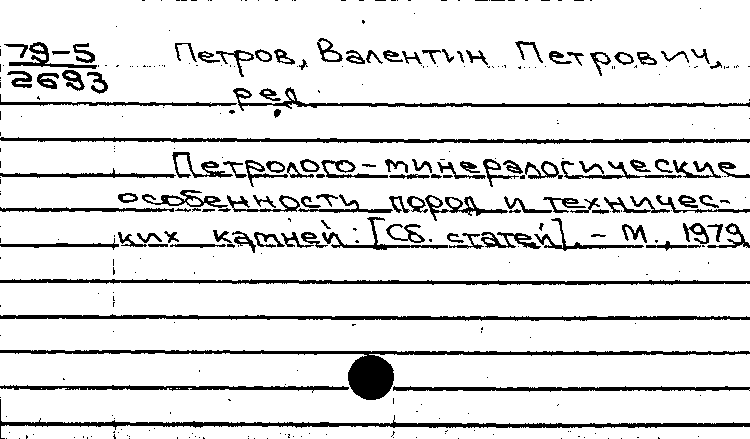 79-5 Петров, Валентин Петрович,
2693 ред.
Петролого-минералогические
особенности пород и техничес-
ких камней: [Сб. статей]. - М., 1979